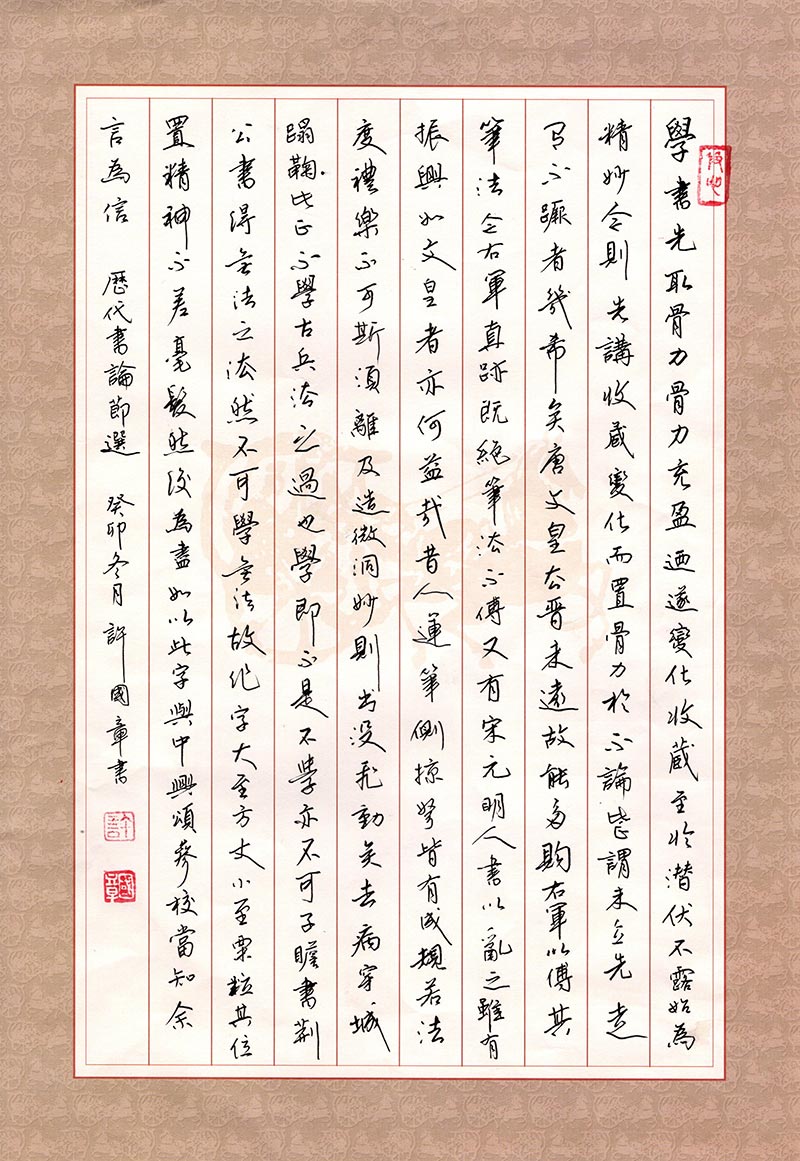 學書先取骨力骨力充盈迺遂變化收藏至於潛伏不露始為
精妙令則先講收藏變化而置骨力於不論皆謂未立先走
不蹶者幾希矣唐文皇去晉未遠故能多購右軍以傳其
筆法今右軍真跡既絕筆法不傳又有宋元明人書以亂之雖有
振興如文皇者亦何益哉昔人運筆側掠努皆有成規若法
度禮樂不可斯須離及造微洞妙則出沒飛動矣去病穿城
蹋鞠此正不學古兵法之過也學即不是不學亦不可子瞻書荊
公書得無法之法然不可學無法故作字大至方丈小至粟粒其位
置精神不差毫髮然後為盡如以此字與中興頌參校當知余
言為信 歷代書論節選 癸卯冬月許國章書
許
國章